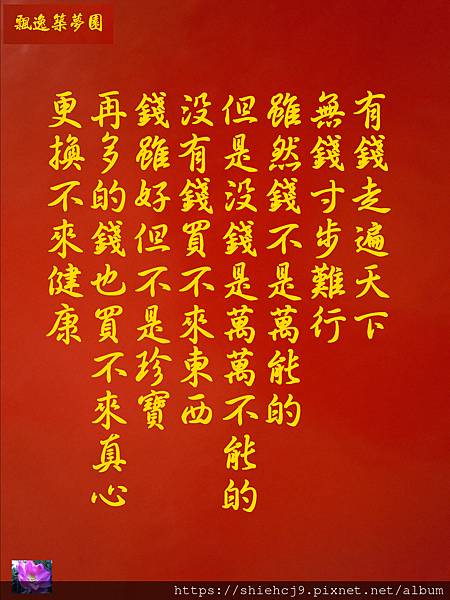 飄逸築夢園
有錢走遍天下
無錢寸步難行
雖然錢不是萬能的
但是沒錢是萬萬不能的
沒有錢買不來東西
錢雖好但不是珍寶
再多的錢也買不來真心
更換不來健康
https://shiehcj9.pixnet.net/album